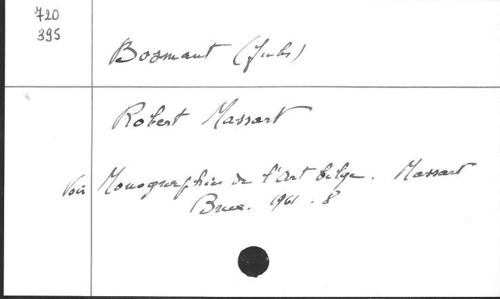 720
395
Bosmant (Jules)
Robert Massart
Voir Monographies de l'Art belge. Massart
Brux. 1961. 8°